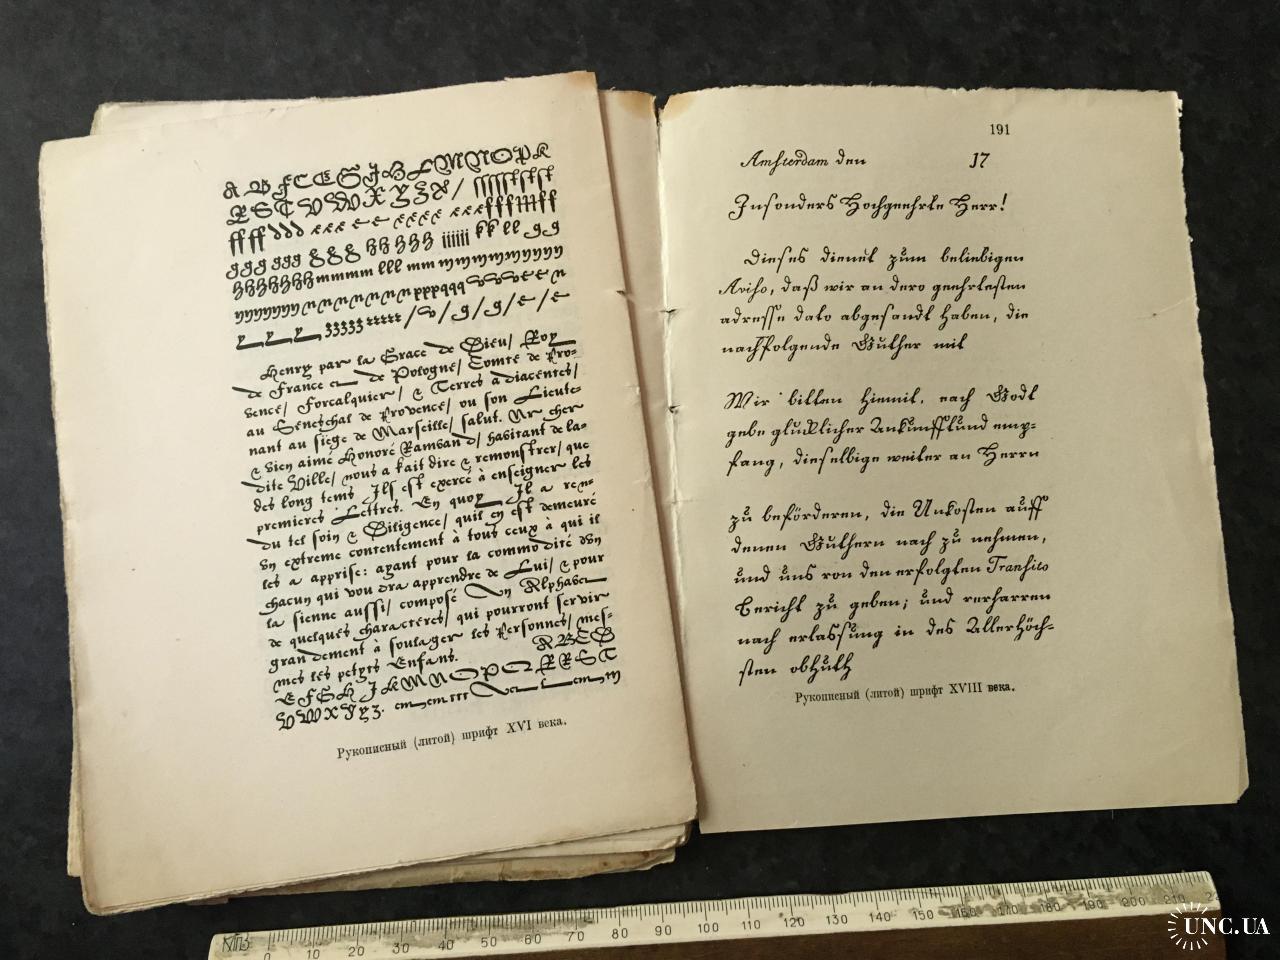 A B F C E G I H L M N O P R
R S T V W X Y Z
Henry par la Grace de Dieu/ Roy
de France et de Pologne/ Comte de Pro-
vence/ Forcalquier/ & Terres adiacentes/
au Séneschal de Provence/ ou son Lieute-
nant au siège de Marseille/ salut. Nr cher
& bien aimé Honoré Rambaud/ habitant de la-
dite Ville/ nous a fait dire & remonstrer/ que
des long tems Ils est exercé à enseigner les
premieres Lettres. En quoy Il a ren-
du tel soin & Diligence/ quil en est demeuré
vn extreme contentement à tous ceux à qui il
les a apprise: ayant pour la commodité d'vn
chacun qui voudra apprendre de Lui/ & pour
la sienne aussi/ composé Vn Alphabet
de quelques characteres/ qui pourront servir
grandement à soulager les Personnes/ mes-
mes les petyts Enfans. A B C D
E F G H I L M N O P Q R R S T
V W X Y Z.
Рукописный (литой) шрифт XVI века.
191
Amsterdam den 17
Insonders Hochgeehrte Herr!
Dieses dienet zum beliebigen
Aviso, daß wir an dero geehrtesten
adresse dato abgesandt haben, die
nachfolgende Güther mit
Wir bitten hiemit, nach Godt
gebe glücklicher Ankunfft und emp-
fang, dieselbige weiter an Herrn
zu beförderen, die Unkosten auff
denen Güthern nach zu nehmen,
und uns von den erfolgten Transito
Bericht zu geben; und verharren
nach erlassung in des Allerhöch-
sten obhuth
Рукописный (литой) шрифт XVIII века.
0 10 20 30 40 50 60 70 80 90 100 110 120 130 140 150 160 170 180 190 200 210
UNC.UA